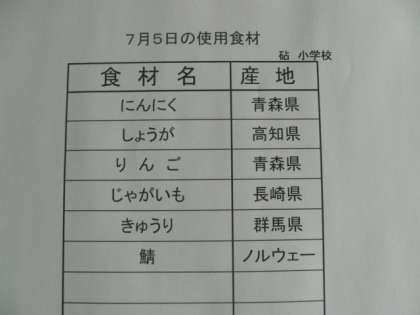 7月5日の使用食材
砧 小学校
食材名 産地
にんにく 青森県
しょうが 高知県
りんご 青森県
じゃがいも 長崎県
きゅうり 群馬県
鯖 ノルウェー